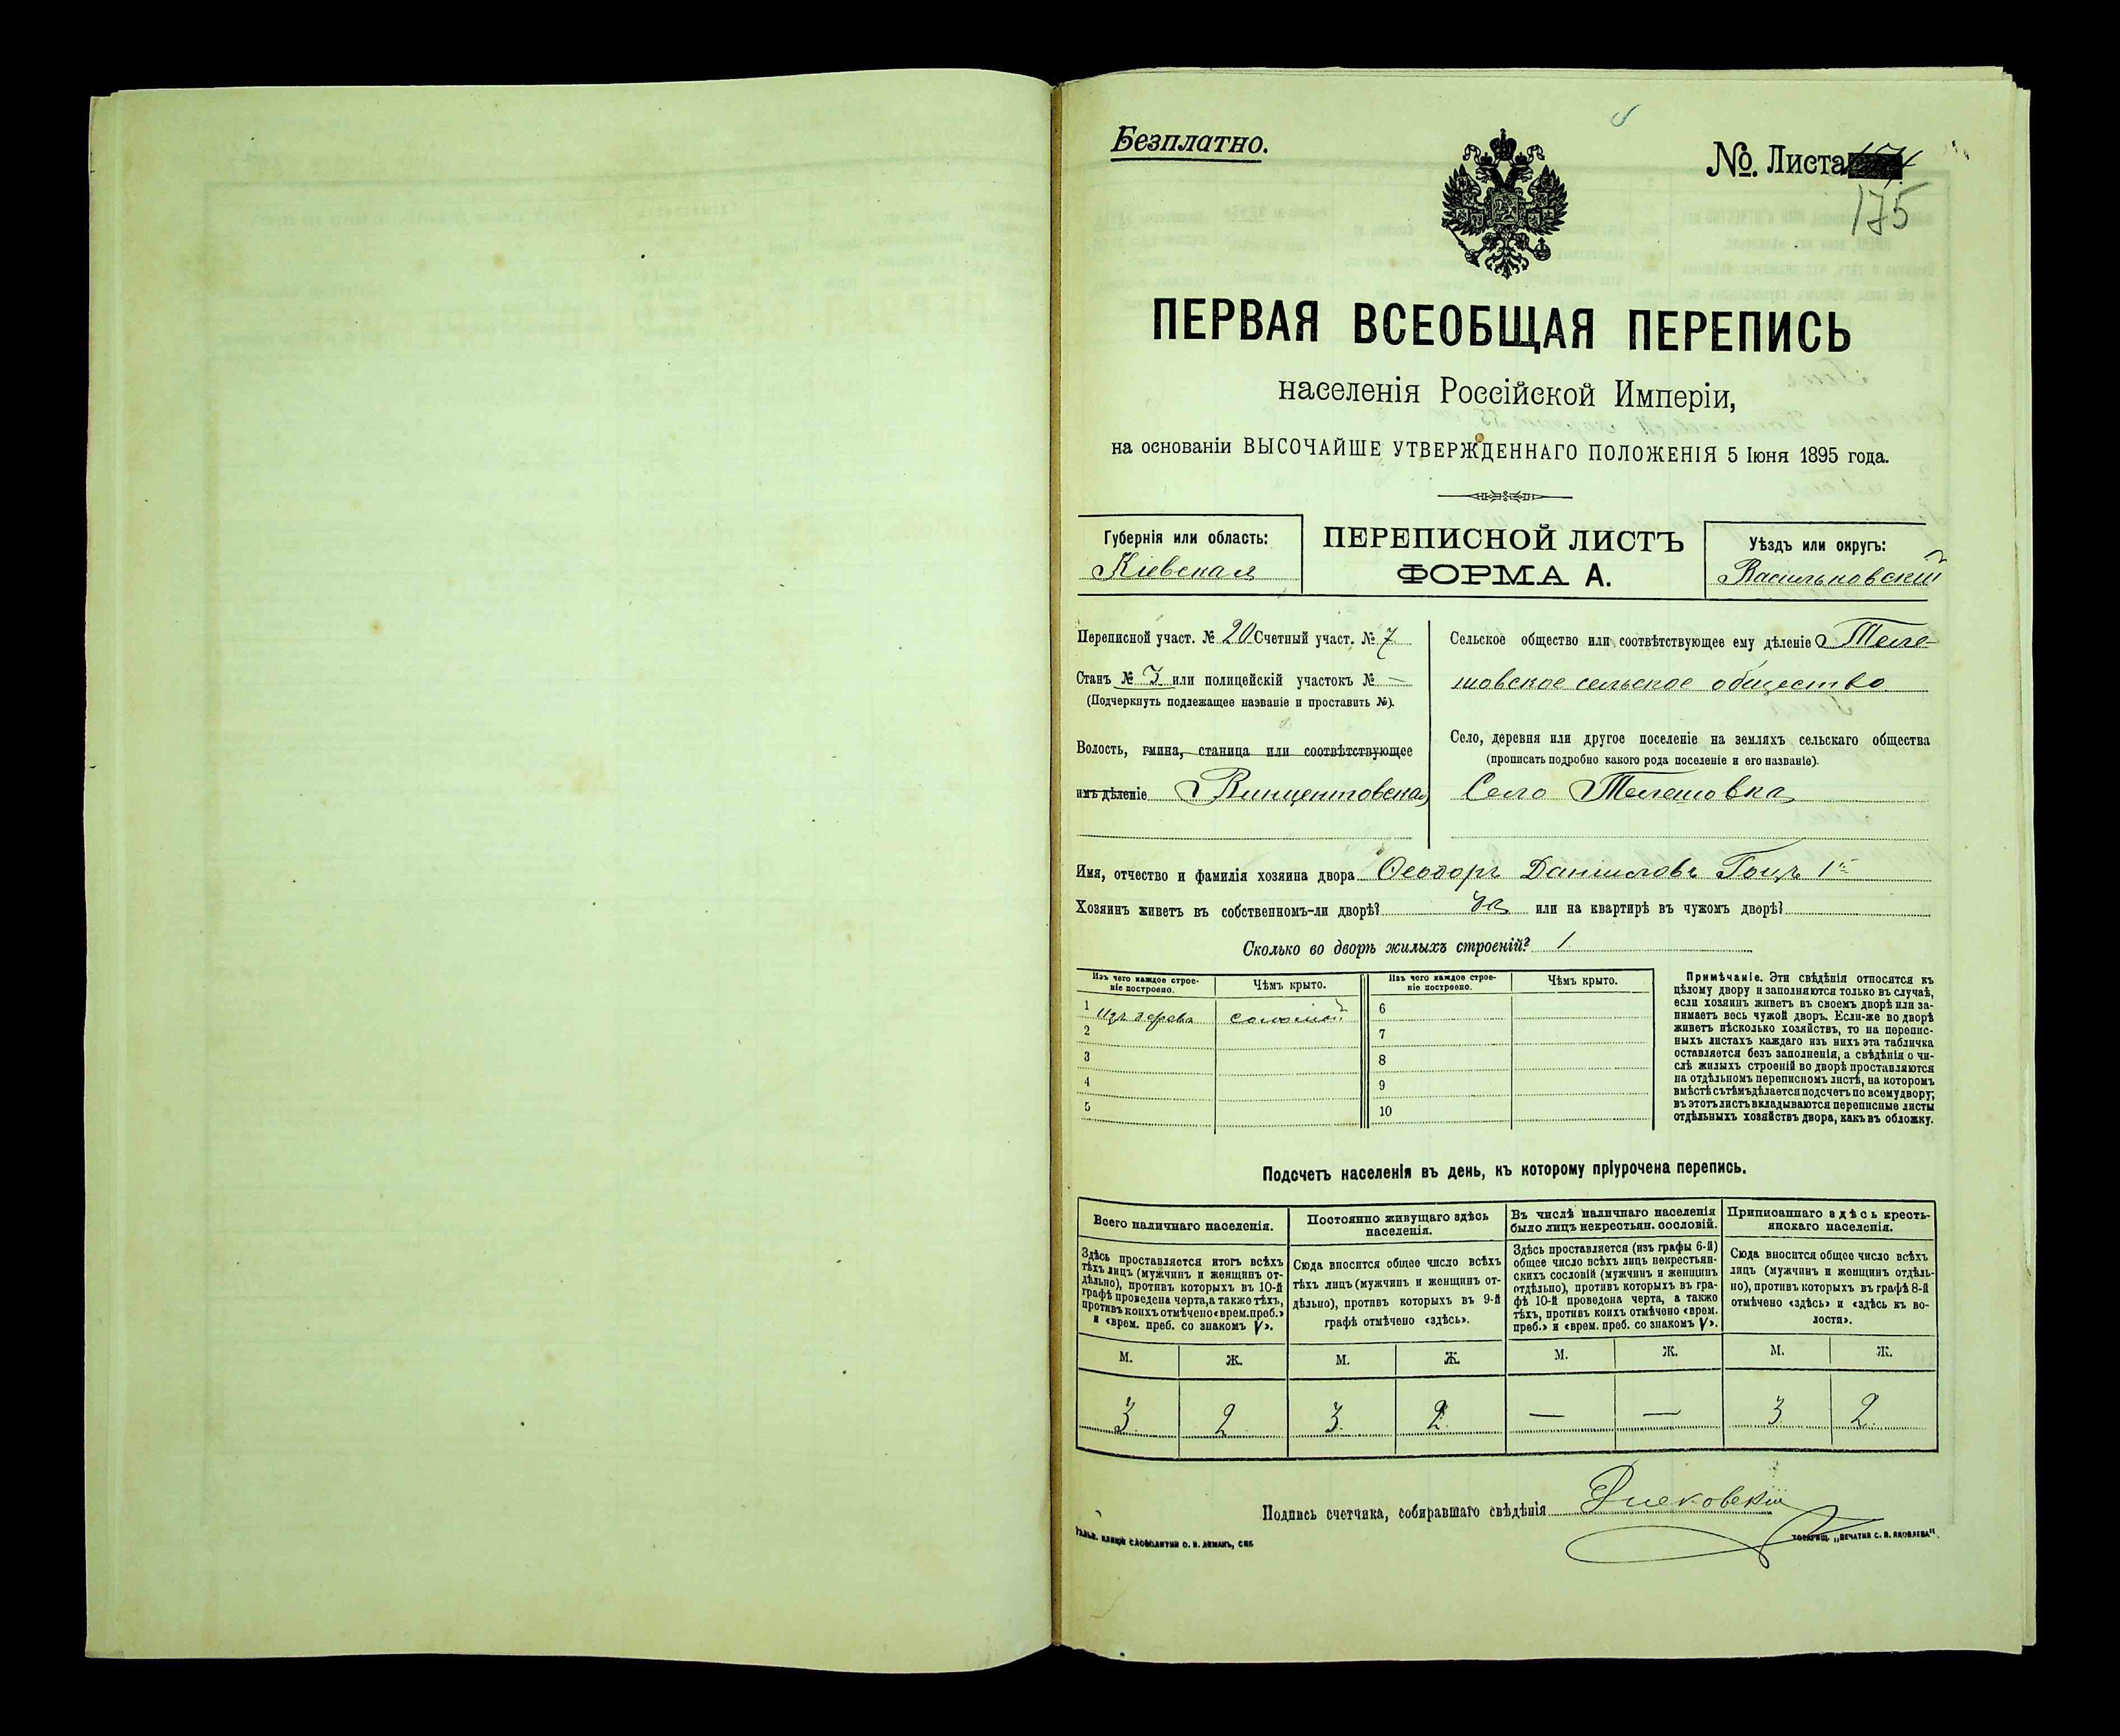 Безплатно.
№. Листа
175
ПЕРВАЯ ВСЕОБЩАЯ ПЕРЕПИСЬ
населенія Россійской Имперіи,
на основаніи ВЫСОЧАЙШЕ УТВЕРЖДЕННАГО ПОЛОЖЕНІЯ 5 Іюня 1895 года.
Губернія или область:
Кіевская
ПЕРЕПИСНОЙ ЛИСТЪ
ФОРМА А.
Уѣздъ или округъ:
Васильковскій
Переписной участ. № 20 Счетный участ. № 7
Станъ № 3 или полицейскій участокъ № —
(Подчеркнуть подлежащее названіе и проставить №).
Волость, гмина, станица или соотвѣтствующее
имъ дѣленіе Винцентовская
Сельское общество или соотвѣтствующее ему дѣленіе Теле-
шовское сельское общество
Село, деревня или другое поселеніе на земляхъ сельскаго общества
(прописать подробно какого рода поселеніе и его названіе).
Село Телешовка
Имя, отчество и фамилія хозяина двора Ѳеодоръ Даниловъ Гоцъ 1й
Хозяинъ живетъ въ собственномъ-ли дворѣ? да или на квартирѣ въ чужомъ дворѣ?
Сколько во дворѣ жилыхъ строеній? 1
Изъ чего каждое строе-
ніе построено.
Чѣмъ крыто.
Изъ чего каждое строе-
ніе построено.
Чѣмъ крыто.
1 изъ дерева соломой 6
2 7
3 8
4 9
5 10
Примѣчаніе. Эти свѣдѣнія относятся къ
цѣлому двору и заполняются только въ случаѣ,
если хозяинъ живетъ въ своемъ дворѣ или за-
нимаетъ весь чужой дворъ. Если-же во дворѣ
живетъ нѣсколько хозяйствъ, то на перепис-
ныхъ листахъ каждаго изъ нихъ эта табличка
оставляется безъ заполненія, а свѣдѣнія о чи-
слѣ жилыхъ строеній во дворѣ проставляются
на отдѣльномъ переписномъ листѣ, на которомъ
вмѣстѣ съ тѣмъ дѣлается подсчетъ по всему двору;
въ этотъ листъ вкладываются переписные листы
отдѣльныхъ хозяйствъ двора, какъ въ обложку.
Подсчетъ населенія въ день, къ которому пріурочена перепись.
Всего наличнаго населенія.
Здѣсь проставляется итогъ всѣхъ
тѣхъ лицъ (мужчинъ и женщинъ от-
дѣльно), противъ которыхъ въ 10-й
графѣ проведена черта, а также тѣхъ,
противъ коихъ отмѣчено «врем. преб.»
и «врем. преб. со знакомъ V».
Постоянно живущаго здѣсь
населенія.
Сюда вносится общее число всѣхъ
тѣхъ лицъ (мужчинъ и женщинъ от-
дѣльно), противъ которыхъ въ 9-й
графѣ отмѣчено «здѣсь».
Въ числѣ наличнаго населенія
было лицъ некрестьян. сословій.
Здѣсь проставляется (изъ графы 6-й)
общее число всѣхъ лицъ некрестьян-
скихъ сословій (мужчинъ и женщинъ
отдѣльно), противъ которыхъ въ гра-
фѣ 10-й проведена черта, а также
тѣхъ, противъ коихъ отмѣчено «врем.
преб.» и «врем. преб. со знакомъ V».
Приписаннаго здѣсь кресть-
янскаго населенія.
Сюда вносится общее число всѣхъ
лицъ (мужчинъ и женщинъ отдѣль-
но), противъ которыхъ въ графѣ 8-й
отмѣчено «здѣсь» и «здѣсь къ во-
лости».
М. Ж. М. Ж. М. Ж. М. Ж.
3 2 3 2 — — 3 2
Подпись счетчика, собиравшаго свѣдѣнія
ГАЛЬВ. КЛИШЕ СЛОВОЛИТНИ О. И. ЛЕМАНЪ, СПБ.
ТОВАРИЩ. „ПЕЧАТНЯ С. П. ЯКОВЛЕВА"